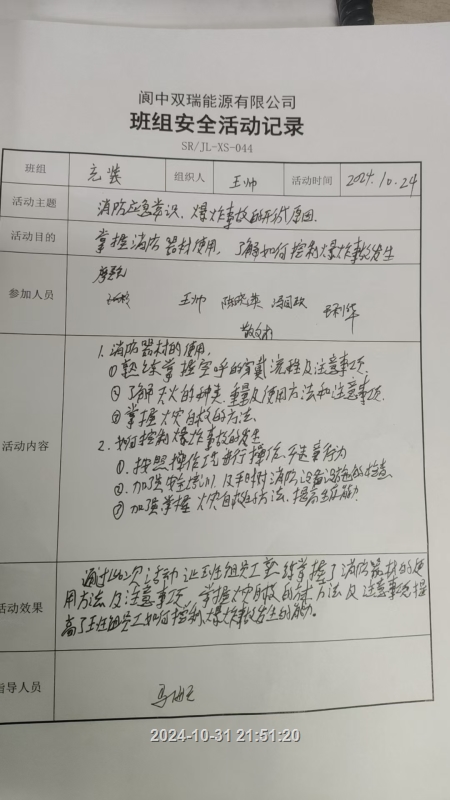 阆中双瑞能源有限公司
班组安全活动记录
SR/JL-XS-044
班组 充装 组织人 王帅 活动时间 2024.10.24
活动主题 消防应急常识、爆炸事故的形成原因.
活动目的 掌握消防器材使用,了解如何控制爆炸事故发生
参加人员
王帅
活动内容
1.消防器材的使用.
①熟练掌握空呼的穿戴流程及注意事项.
②了解灭火的种类、重量及使用方法和注意事项.
③掌握火灾自救的方法.
2.如何控制爆炸事故的发生
①.按照操作规进行操作,违章行为
②.加强安全培训及平时对消防设备设施的检查
③加强掌握火灾自救的方法、提高应能力
活动效果
通过此次活动让班组员工熟练掌握了消防器材的使
用方法及注意事项、掌握火灾自救的方法及注意事项提
高了班组员工如何控制爆炸事故发生的能力。
指导人员
2024-10-31 21:51:20